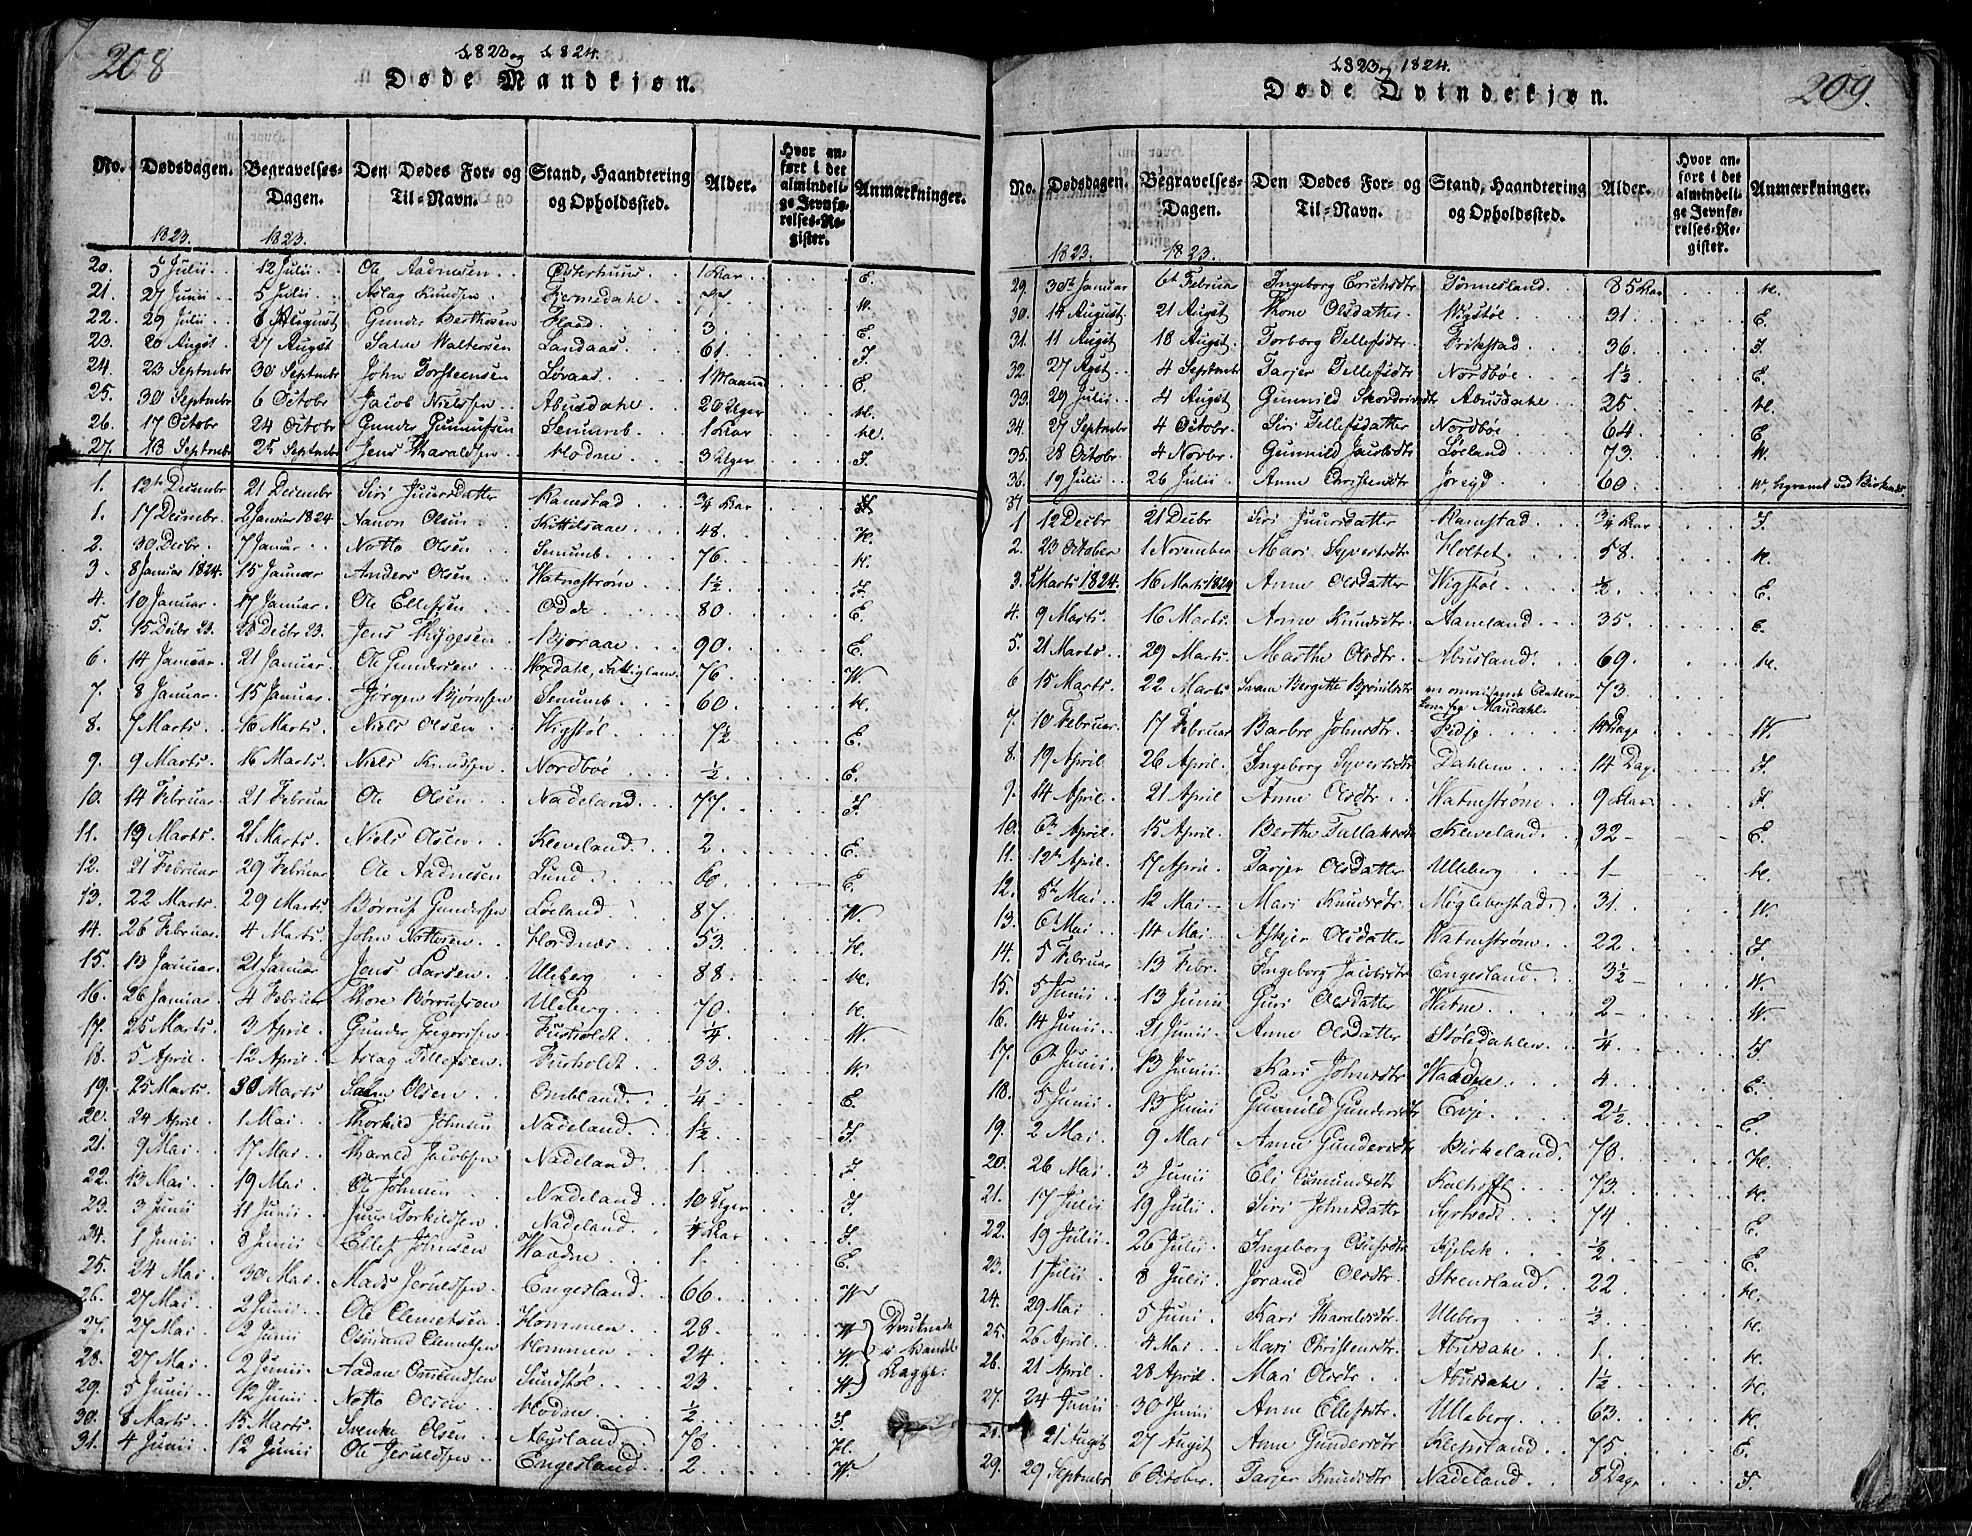 208
1823 og 1824.
Døde Mandkjøn.
No. Dødsdagen. Begravelses-Dagen. Den Dødes For- og Til-Navn. Stand, Haandtering og Opholdssted. Alder. Hvor anført i det almindelige Jevnførelses-Register. Anmærkninger.
1823. 1823.
20. 5 Julii 12 Julii Ole Aadnesen Østerhuus 1 Aar E.
21. 27 Junii 5 Julii Aslag Knudsen
22. 29 Julii 6 August Gunder Berthosen Flaad 3. E.
23. 20 Augst 27 Augst Salve Waltersen Landaas 61. I.
24. 23 Septembr 30 Septembr John Torsteensen Løvaas 1 Maaned E.
25. 30 Septembr 6 Octobr Jacob Nielssen Abusdahl 20 Uger H.
26. 17 Octobr 24 Octobr Gunder Gunnufsen Senumb 1 Aar H.
27. 18 Septembr 25 Septembr Jens Tharaldsen Modne 3 Uger I.
1. 12te Decembr 21 Decembr Siri Juursdatter Ramstad 3/4 Aar
1. 17 Decembr 2 Januar 1824 Aanon Olsen Kittilsaae 48. H.
2. 30 Decbr. 7 Januar Notto Olsen Senumb 76. H.
3. 8 Januar 1824. 15 Januar Anders Olsen Watnestrøm 1½ I.
4. 10 Januar. 17 Januar. Ole Ellefsen Odde 80. E.
5. 15 Decbr 23. 23 Decbr 23. Jens Thygesen Bjoraae 90. E.
6. 14 Januar. 21 Januar. Ole Gundersen 76. W.
7. 8 Januar. 15 Januar. Jørgen Bjørnsen Senumb 60. H.
8. 7 Marts 16 Marts. Niels Olsen Wigstøl 7½ E.
9. 9 Marts. 16 Marts. Niels Knudsen Nordbøe ½ E.
10. 14 Februar. 21 Februar Ole Olsen Nadeland 77. I.
11. 19 Marts 26 Marts. Niels Olsen Kleveland 2. E.
12. 21 Februar 29 Februar Ole Aadnesen Lund 60. E.
13. 22 Marts. 29 Marts. Børruf Gundersen Løeland 87. W.
14. 26 Februar. 4 Marts. John Nottesen Hordnæs 53. H.
15. 13 Januar. 21 Januar Jens Larsen Uleberg 88. H.
16. 26 Januar. 4 Februar Thore Børrufsen Uleberg 70. H.
17. 25 Marts. 3 April. Gunder Gregorisen Furholdt ¼ W.
18. 5 April. 12 April. Aslag Tellefsen Furholdt 33. W.
19. 25 Marts. 30 Marts Salve Olsen Ombland ¼ E.
20. 24 April. 1 Mai. Thorkild Johnsen Nadeland 1½ I.
21. 9 Mai. 17 Mai. Tharald Jacobsen Nadeland 1. I.
22. 12 Mai. 19 Mai. Ole Johnsen Nadeland 10 Uger I.
23. 3 Junii 11 Junii. Juur Torkildsen Nadeland. ¼ Aar I.
24. 1 Junii 8 Junii Ellef Johnsen Waadne 1. E.
25. 24 Mai. 30 Mai. Mads Jeruldsen Engesland 66. W.
26. 27 Mai. 2 Junii. Ole Clemetsen Hommen 28. W.
27. 27 Mai. 2 Junii Osmund Clemetsen Hommen 24. W.
28. 27 Mai. 2 Junii. Aadan Osmundsen Sundstøl 23. W. Druknede i
29. 5 Junii. 12 Junii. Notto Olsen Modne ½ I.
30. 8 Marts. 15 Marts. Svenke Olsen Abusland 78 H.
31. 4 Junii 12 Junii Ole Jeruldsen Engesland 2. W.
1823 og 1824.
Døde Qvindekjøn.
209.
No. Dødsdagen. Begravelses-Dagen. Den Dødes For- og Til-Navn. Stand, Haandtering og Opholdssted. Alder. Hvor anført i det almindelige Jevnførelses-Register. Anmærkninger.
1823. 1823.
29. 30te Januar 6te Februar Ingeborg Erichsdtr Tønnesland 85 Aar H.
30. 14 August 21 Augst Thone Olsdatter Wigstøl 31. E.
31. 11 Augst 18 Augst. Torborg Tellefsdtr Frikstad 36. I.
32. 27 Agst 4 Septembr Tarjer Tellefsdtr Nordbøe 1½ E.
33. 29 Julii 4 Augst Gunnild Abusdahl 25. H.
34. 27 Septembr 4 Octobr. Siri Tellefsdatter Nordbøe 64. E.
35. 28 Octobr 4 Novbr. Gunnild Jacobsdtr Løeland 73. W.
36. 19 Julii 26 Julii Anne Christensdtr 60.
37
1 12 Decbr 21 Decbr Siri Juursdatter Ramstad 3/4 Aar I.
2. 23 October 1 November Mari Syvertsdtr Holtet 58. H.
3. Marts 1824. 16 Marts 1824 Anne Olsdatter Wigstøl ½ E.
4. 9 Marts. 16 Marts. Anne Knudsdtr. Aaneland 35. E.
5. 21 Marts 29 Marts. Marthe Olsdtr. Abusland 69. H.
6 15 Marts. 22 Marts Bergitte 73. Mandahl.
7. 10 Februar 17 Februar Barbro Johnsdtr. Fidje 14 Dage W.
8. 19 April 26 April. Ingeborg Syvertsdtr Dahlene 14 Dag. I.
9. 14 April. 21 April Anne Olsdtr. Watnestrøm 9 Aar. I.
10. 6te April. 15 April. Berthe Kleveland 32 E.
11. 12te April. 17 April. Tarjer Olsdatter Uleberg 1 H.
12. 5te Mai 12 Mai. Mari Knudsdtr. Møglebostad 31. W.
13. 6te Mai. 14 Mai. Askjer Olsdatter Watnestrøm 22. I.
14. 5 Februar 13 Febr. Ingeborg Jacobsdtr Engesland 3½ W.
15. 5 Junii 13 Junii Guri Olsdatter Watne 2 W.
16. 14 Junii 21 Junii. Anne Olsdatter Stølsdahlen ¼ I.
17. 6te Junii 13 Junii. Kari Johnsdtr Waadne 4. E.
18. 5 Junii 13 Junii Gunnild Gundersdtr Evje 2½ E.
19. 2 Mai. 9 Mai Anne Gundersdtr Birkeland 70. H.
20. 26 Mai 3 Junii Eli Osmundsdtr Kalhoft 73. H.
21. 17 Julii 19 Julii. Siri Johnsdatter 74 E.
22. 19 Julii 26 Julii. Ingeborg ½ E.
23. 1 Julii 8 Julii Jorand Olsdtr. Steensland 22. H.
24. 29 Mai 5 Juni Kari Tharaldsdtr. Uleberg ½ H.
25. 26 April. 4 Mai Mari Christensdtr. Abusdahl 1. H.
26. 21 April. 28 April Mari Olsdtr. Abusdahl 1½ H.
27. 24 Junii 30 Junii Anne Ellefsdtr. Uleberg 63. H.
28. 21 Augst 27 Augst Anne Gundersdtr 75. E.
29. 29 Septembr 6 October. Tarjer Knudsdtr Nadeland. 8 Dage I.